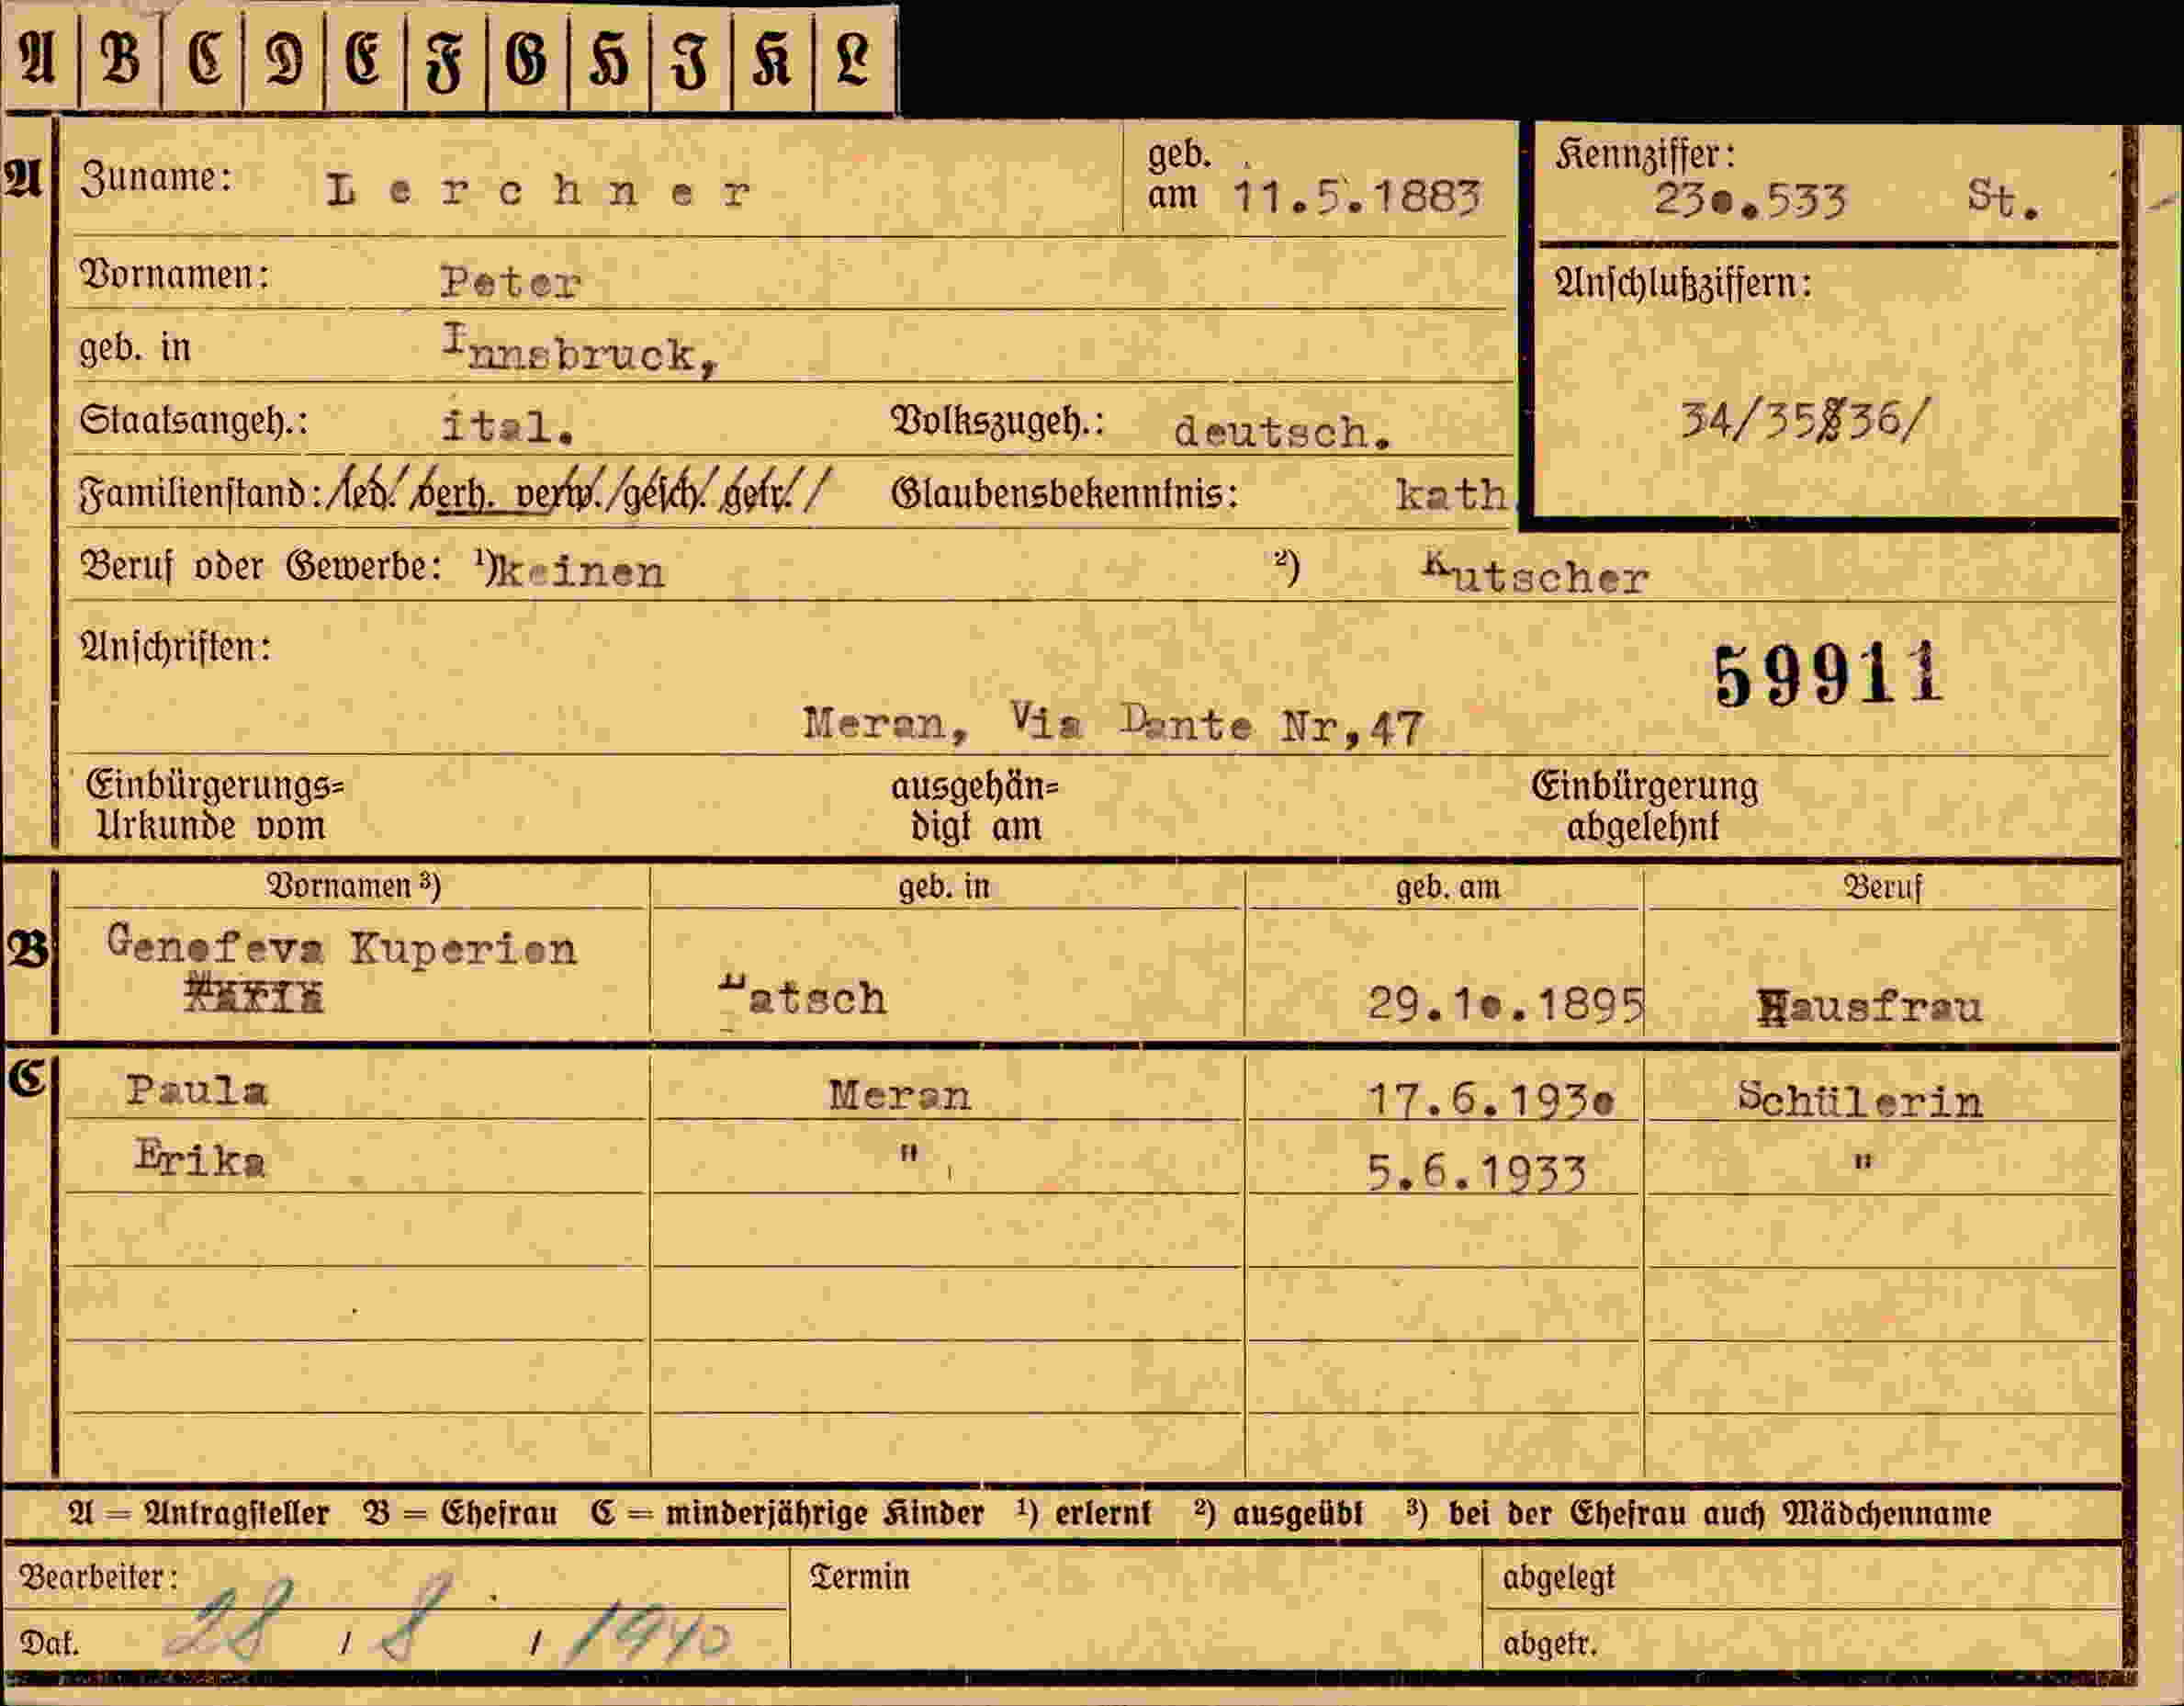 A B C D E F G H I K L
A Zuname: Lerchner geb. am 11.5.1883 Kennziffer: 230.533 St.
Vornamen: Peter Anschlußziffern:
geb. in Innsbruck,
Staatsangeh.: ital. Volkszugeh.: deutsch. 34/35/36/
Familienstand: led. verh. verw. gesch. getr. Glaubensbekenntnis: kath
Beruf oder Gewerbe: ¹) keinen ²) Kutscher
Anschriften: 59911
Meran, Via Dante Nr,47
Einbürgerungs= ausgehän= Einbürgerung
Urkunde vom digt am abgelehnt
Vornamen ³) geb. in geb. am Beruf
B Genofeva Kuperion
Matsch 29.10.1895 Hausfrau
C Paula Meran 17.6.1930 Schülerin
Erika " 5.6.1933 "
A = Antragsteller B = Ehefrau C = minderjährige Kinder ¹) erlernt ²) ausgeübt ³) bei der Ehefrau auch Mädchenname
Bearbeiter: Termin abgelegt
Dat. 28 / 8 / 1940 abgetr.